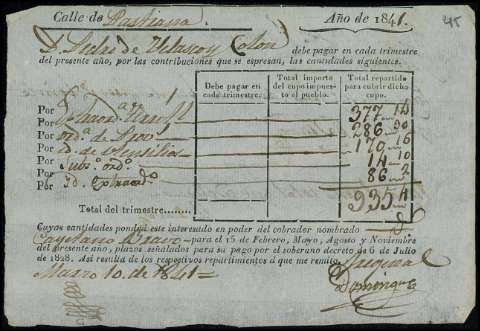 Calle de Rastiasna Año de 1841. 45
D. Pedro de Velasco y Colon debe pagar en cada trimestre
del presente año, por las contribuciones que se espresan, las cantidades siguientes.
Debe pagar en cada trimestre. Total importo del cupo impuesto el pueblo. Total repartido para cubrir dicho cupo.
Por 377 14
Por ord.ª de 286 30
Por id. de 170 16
Por Subs.º ord.º 14 10
Por id. 86 2
Por
Total del trimestre........ 935 4
Cuyas cantidades pondrá este interesado en poder del cobrador nombrado
Cayetano Bravo para el 15 de Febrero, Mayo, Agosto y Noviembre
del presente año, plazos señalados para su pago por el soberano decreto de 6 de Julio
de 1828. Asi resulta de los respectivos repartimientos á que me remito.
Marzo 10. de 1841
Dominguez